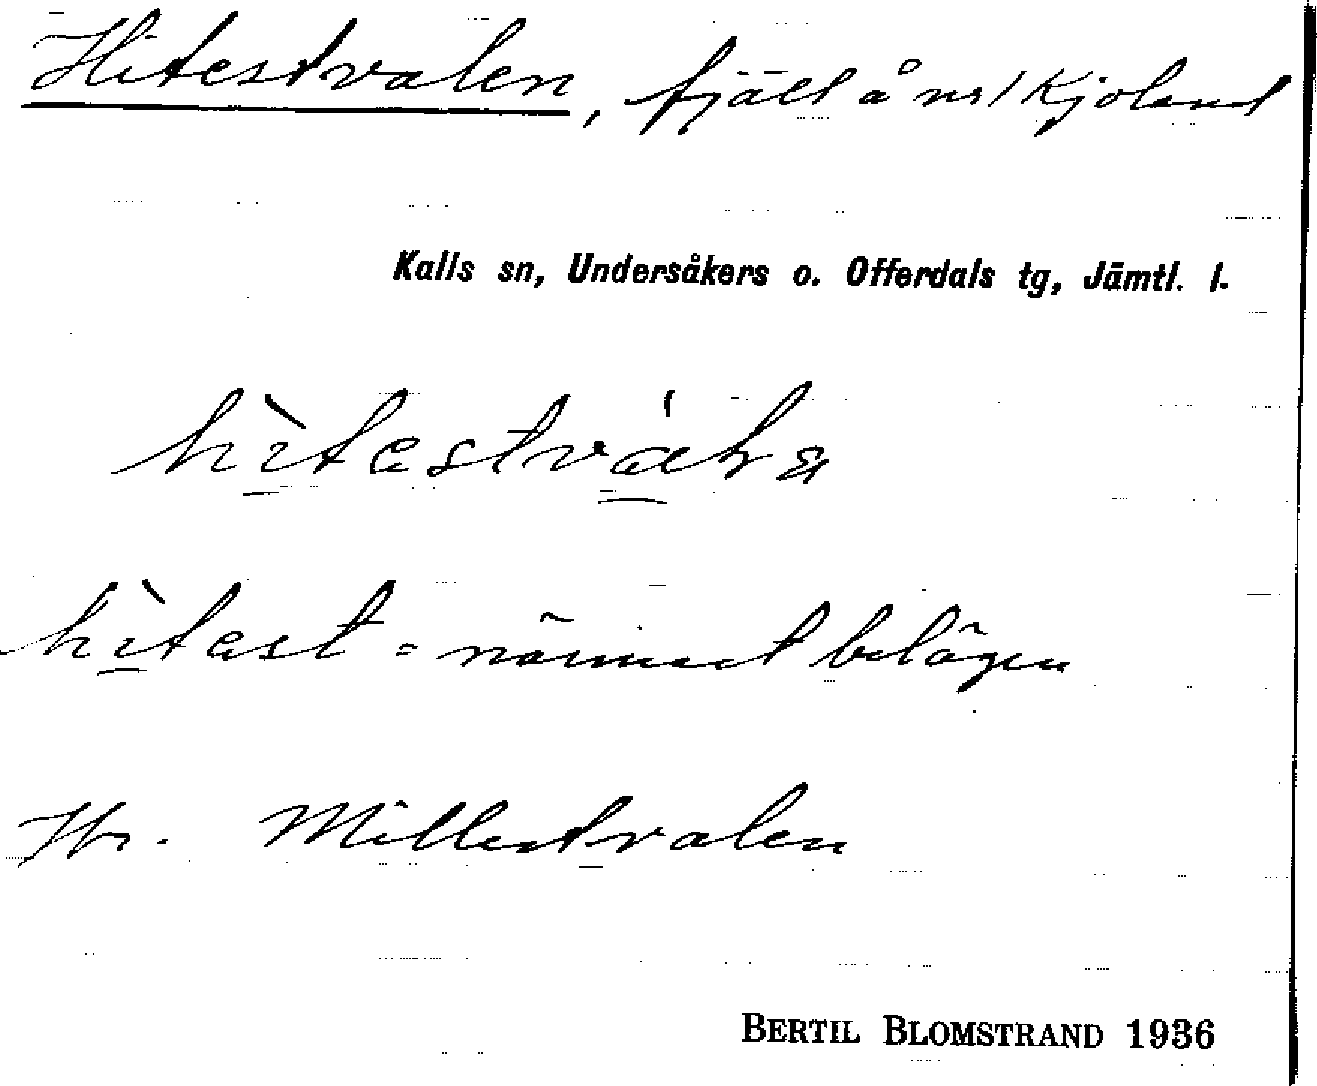 Hitestvalen, fjäll å nr 1 Kjoland
Kalls sn, Undersåkers o. Offerdals tg, Jämtl. l.
hìtest = närmast belägen
Jfr. Millestvalen
BERTIL BLOMSTRAND 1936